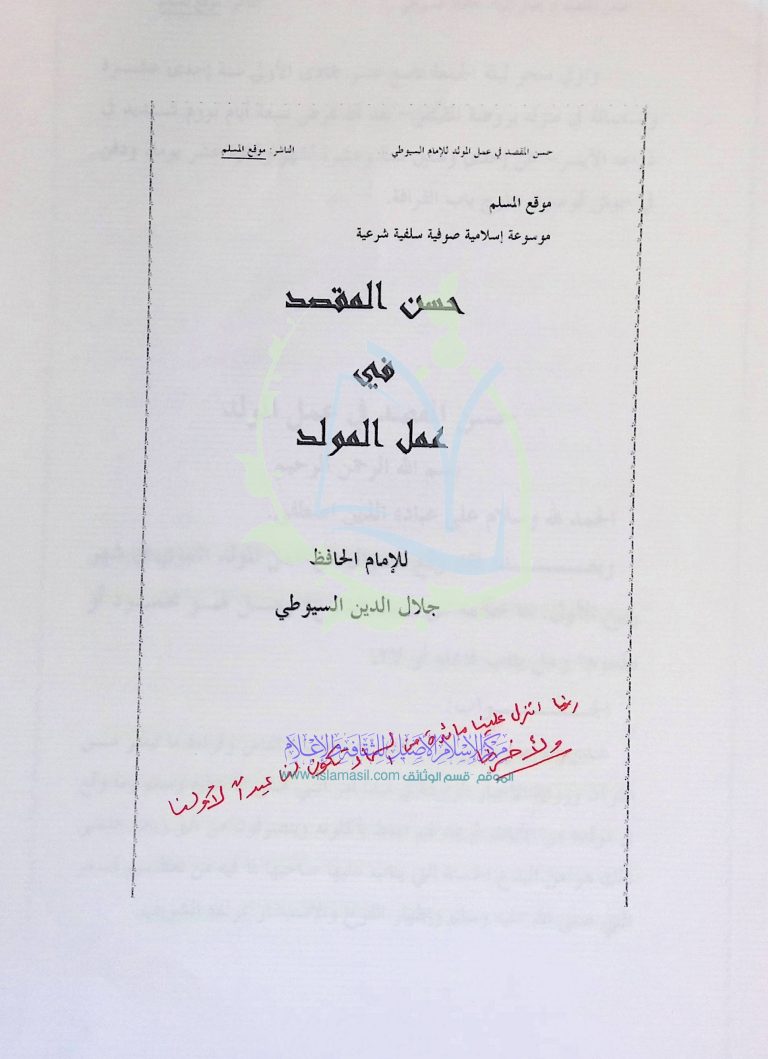 حسن المقصد في عمل المولد للإمام السيوطي الناشر: موقع المسلم
موقع المسلم
موسوعة إسلامية صوفية سلفية شرعية
حسن المقصد
في
عمل المولد
للإمام الحافظ
جلال الدين السيوطي
ربنا انزل علينا مائدة من السماء تكون لنا عيداً لأولنا
وآخرنا
مركز الإسلام الأصيل للثقافة والإعلام
الموقع - قسم الوثائق www.islamasil.com